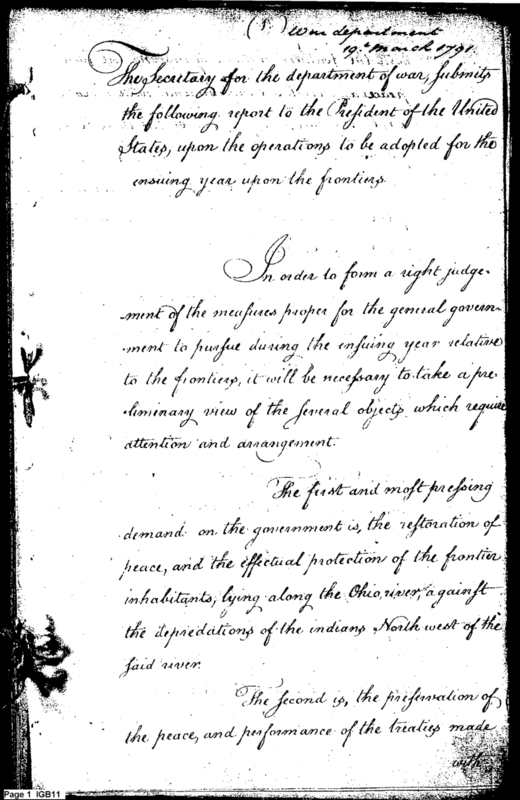 (1.) War department
19th March 1791.
The Secretary for the department of war, submits
the following report to the President of the United
States, upon the operations to be adopted for the
ensuing year upon the frontiers.
In order to form a right judge-
-ment of the measures proper for the general govern-
-ment to pursue during the ensuing year relative
to the frontiers, it will be necessary to take a pre-
-liminary view of the several objects which require
attention and arrangement.
The first and most pressing
demand on the government is, the restoration of
peace, and the effectual protection of the frontier
inhabitants, lying along the Ohio river, against
the depredations of the indians North west of the
said river.
The second is, the preservation of
the peace, and performance of the treaties made
with
Page 1 IGB11